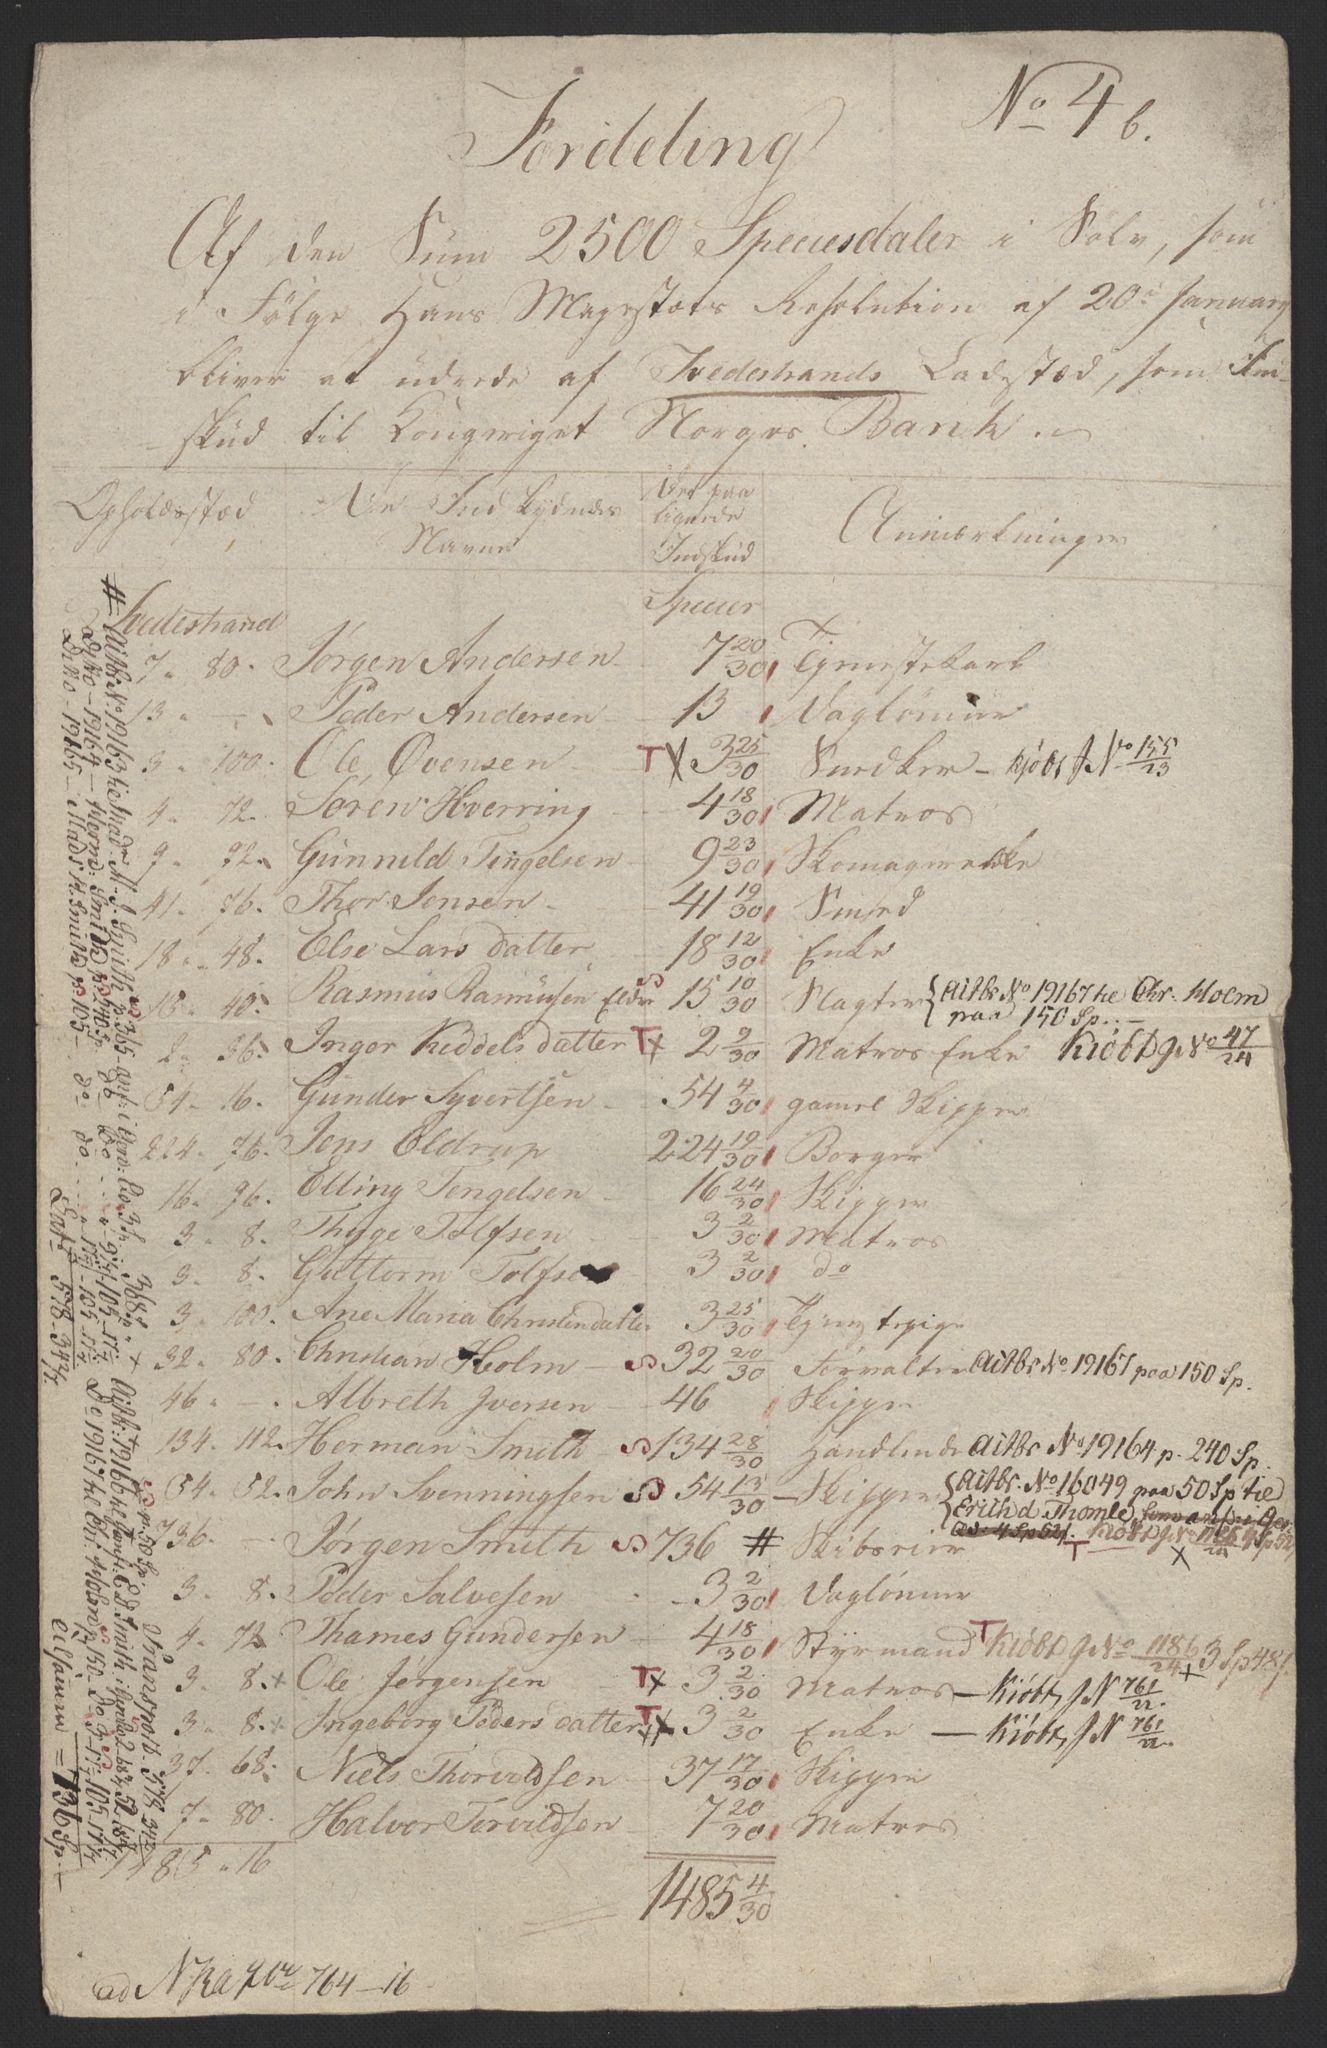 No 4 b.
Fordeling
Af den Sum 2500 Speciesdaler i Sølv, som
i Følge Hans Majestæts Resolution af 20de January
bliver at udrede af Tvedestrands Ladested, som Ind-
skud til Kongeriget Norges Bank.
Opholdsstæd
De Indskydendes
Navne
Det paa
lignede
Indskud
Anmærkninger
Tvedestrand
Specier
7 - 80. Jørgen Andersen 7 20/30 Tjenestekarl
13 - - Peder Andersen 13 Daglønner
3 - 100. Ole Øvensen T X 3 25/30 Snedker - kjøbt J No 155/23
4 - 72. Søren Hverring 4 18/30 Matros
9 - 92. Gunnuld Tengelsen 9 23/30 Skomagerenke
41 - 76. Thor Jensen 41 19/30 Smed
18 - 48. Else Lars datter 18 12/30 Enke
15 - 40. Rasmus Rasmussen Eldre S 15 10/30 Slagter { Actbr No 19167 til Chr. Holm
paa 150 Sp.
2 - 36. Inger Keddels datter T x 2 9/30 Matros Enke Kiøbt J No 47/24
54 - 16. Gunder Syvertsen 54 4/30 gaml Skipper
224 - 76. Jens Eldrup 224 19/30 Borger
16 - 96. Elling Tengelsen 16 24/30 Skipper
3 - 8. Thyge Tolfsen 3 2/30 Matros
3 - 8. Guttorm Tolfsen 3 2/30 do
3 - 100. Ane Maria Christendatter 3 25/30 Tjenestepige
32 - 80. Christian Holm S 32 20/30 Forvalter Actbr No 19167 paa 150 Sp.
46 - - Albreth Iversen 46 Skipper
134 - 112. Herman Smith S 134 28/30 Handlende Actbr No 19164 p. 240 Sp.
54 - 52. John Svenningsen S 54 13/30 Skipper { Actbr. No 16049 paa 50 Sp til
Erich d Thomle,
736 - Jørgen Smith S 736 # Skibsreder
3 - 8. Peder Salvesen 3 2/30 Daglønner
4 - 72 Thames Gundersen 4 18/30 Styrmand T Kiøbt J No 1186/24 + 3 Sp 48
3 - 8. + Ole Jørgensen T x 3 2/30 Matros - Kiøbt, J N 761/22.
3 - 8. + Ingeborg Peders datter T x 3 2/30 Enke - Kiøbt, J N 761/22.
37 - 68. Niels Thorvoldsen 37 17/30 Skipper
7 - 80. Halvor Torvildsen 7 20/30 Matros
1485 - 16
1485 4/30
ad N 764 - 16
# Actbr No 19163
Do No - 19164 - Herm: Smith p. 240 Sp.
Do No - 19165 - Mads H. Smith p. 105
Transport 578
= 736 Sp.